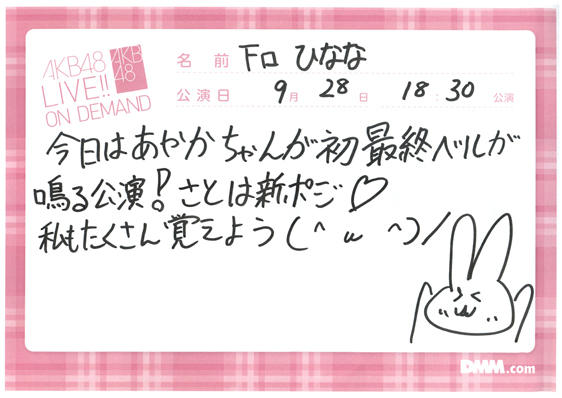 AKB48
LIVE!!
ON DEMAND
AKB
48
名前 下口 ひなな
公演日 9月 28日 18:30 公演
今日はあやかちゃんが初最終ベルが
鳴る公演! さとは新ポジ♡
私もたくさん覚えよう(^ω^)/
DMM.com